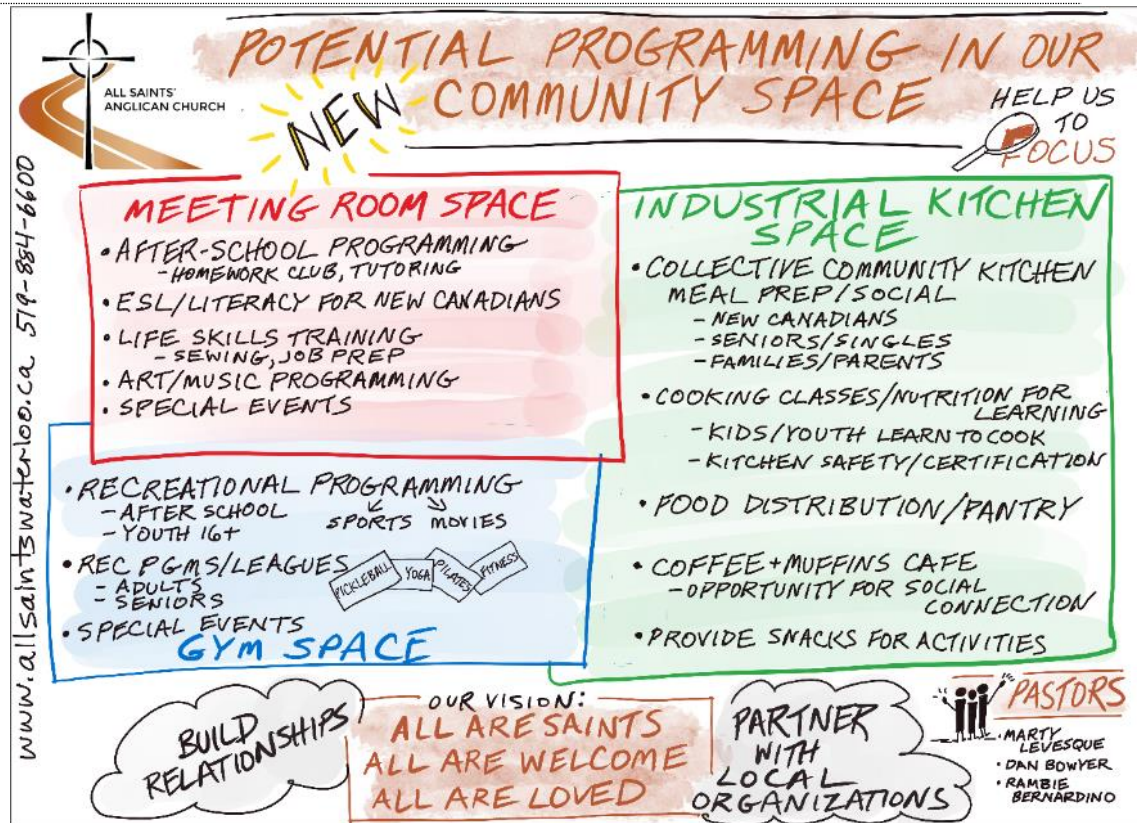 ALL SAINTS'
ANGLICAN CHURCH
POTENTIAL PROGRAMMING IN OUR
COMMUNITY SPACE
NEW
HELP US
TO
FOCUS
www.allsaintswaterloo.ca 519-884-6600
MEETING ROOM SPACE
• AFTER-SCHOOL PROGRAMMING
- HOMEWORK CLUB, TUTORING
• ESL/LITERACY FOR NEW CANADIANS
• LIFE SKILLS TRAINING
- SEWING, JOB PREP
• ART/MUSIC PROGRAMMING
• SPECIAL EVENTS
• RECREATIONAL PROGRAMMING
- AFTER SCHOOL
- YOUTH 16+
SPORTS MOVIES
• REC PGMS/LEAGUES
- ADULTS
- SENIORS
PICKLEBALL YOGA PILATES FITNESS
• SPECIAL EVENTS
GYM SPACE
INDUSTRIAL KITCHEN
SPACE
• COLLECTIVE COMMUNITY KITCHEN
MEAL PREP/SOCIAL
- NEW CANADIANS
- SENIORS/SINGLES
- FAMILIES/PARENTS
• COOKING CLASSES/NUTRITION FOR
LEARNING
- KIDS/YOUTH LEARN TO COOK
- KITCHEN SAFETY/CERTIFICATION
• FOOD DISTRIBUTION/PANTRY
• COFFEE + MUFFINS CAFE
- OPPORTUNITY FOR SOCIAL
CONNECTION
• PROVIDE SNACKS FOR ACTIVITIES
BUILD
RELATIONSHIPS
OUR VISION:
ALL ARE SAINTS
ALL ARE WELCOME
ALL ARE LOVED
PARTNER
WITH
LOCAL
ORGANIZATIONS
PASTORS
• MARTY
LEVESQUE
• DAN BOWYER
• RAMBIE
BERNARDINO